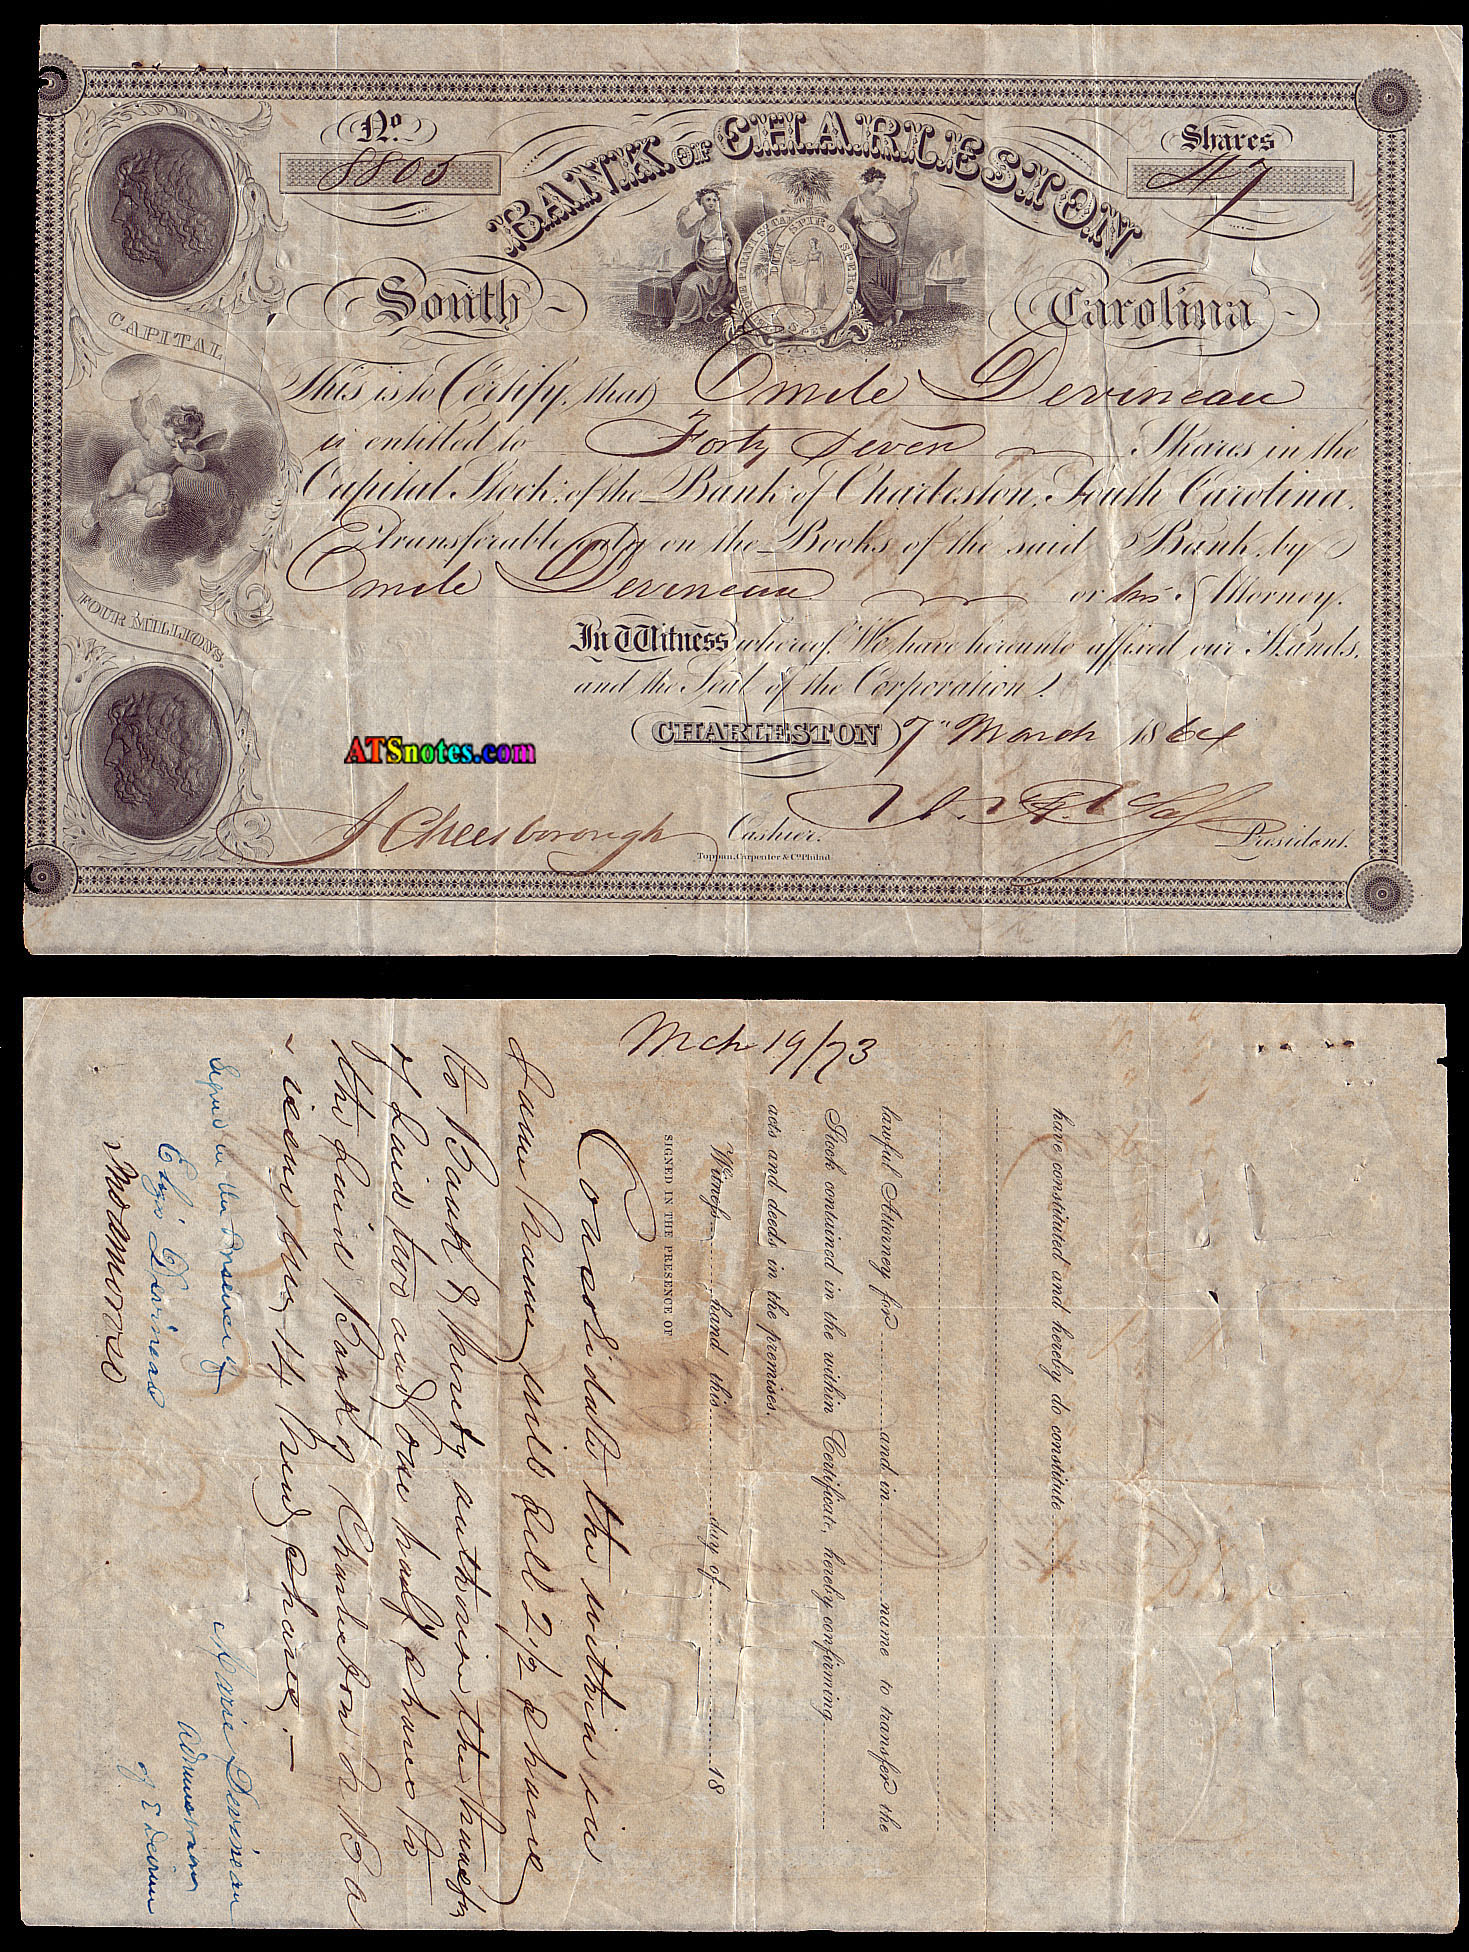 No.
8805
BANK OF CHARLESTON
Shares
47
South Carolina
CAPITAL
FOUR MILLIONS.
DUM SPIRO SPERO
SPES
This is to Certify, that Emile Devineau
is entitled to Forty Seven Shares in the
Capital Stock of the Bank of Charleston, South Carolina.
Transferable only on the Books of the said Bank, by
Emile Devineau or his Attorney.
In Witness whereof, We have hereunto affixed our Hands,
and the Seal of the Corporation.
CHARLESTON 7th March 1864
ATSnotes.com
J Cheesborough Cashier.
President.
Toppan, Carpenter & Co. Philad
Mch 19/73
have constituted and hereby do constitute
lawful Attorney for and in name to transfer the
Stock contained in the within Certificate, hereby confirming
acts and deeds in the premises.
Witness hand this day of 18
SIGNED IN THE PRESENCE OF
Consolidate the within in
Same Name, will sell 2 1/2 share
to Bank, & hereby authorise the transfer
of Said two and one half share to
the said Bank of Charleston
new share
Signed in the presence of
Eliza Devineau
Marie Devineau
Administratrix
of E Devineau